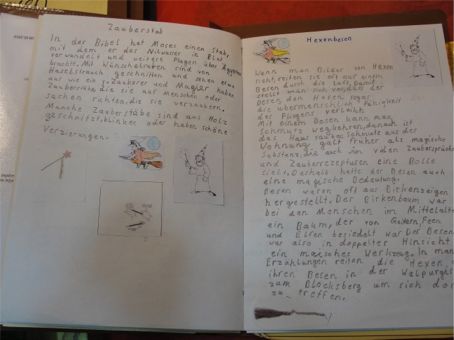 Zauberstab
In der Bibel hat Moses einen Stab,
mit dem er das Nilwasser in Blut
verwandelt und weitere Plagen über Ägypten
brachte. Mit Wünschelruten sind von
Haselstrauch geschnitten und man
nur wie Zauberer und Magier haben
Zauberstäbe, die sie auf Menschen oder
Sachen richten, die sie verzaubern.
Manche Zauberstäbe sind aus Holz
geschnitzt, oder haben schöne
Verzierungen.
Hexenbesen
Wenn man Bilder von Hexen
sieht, reiten sie oft auf einem
Besen durch die Luft. Damit
stellt man sich vor, dass der
Besen den Hexen sogar
die übermenschliche Fähigkeit
des Fliegens verleiht.
Mit einem Besen kann man
Schmutz wegkehren, danach ist
das Haus sauber. Schmutz aus der
Wohnung galt früher als magische
Substanz, die auch in vielen Zaubersprüchen
und Zauberrezepturen eine Rolle
spielt. Deshalb hatte der Besen auch
eine magische Bedeutung.
Besen waren oft aus Birkenzweigen
hergestellt. Der Birkenbaum war
bei den Menschen im Mittelalter
ein Baum, der von Geistern, Feen
und Elfen besiedelt war. Der Besen
war also in doppelter Hinsicht
ein magisches Werkzeug. In man
Erzählungen reiten die Hexen
ihren Besen in der Walpurgis
zum Blocksberg um sich dort
zu treffen.